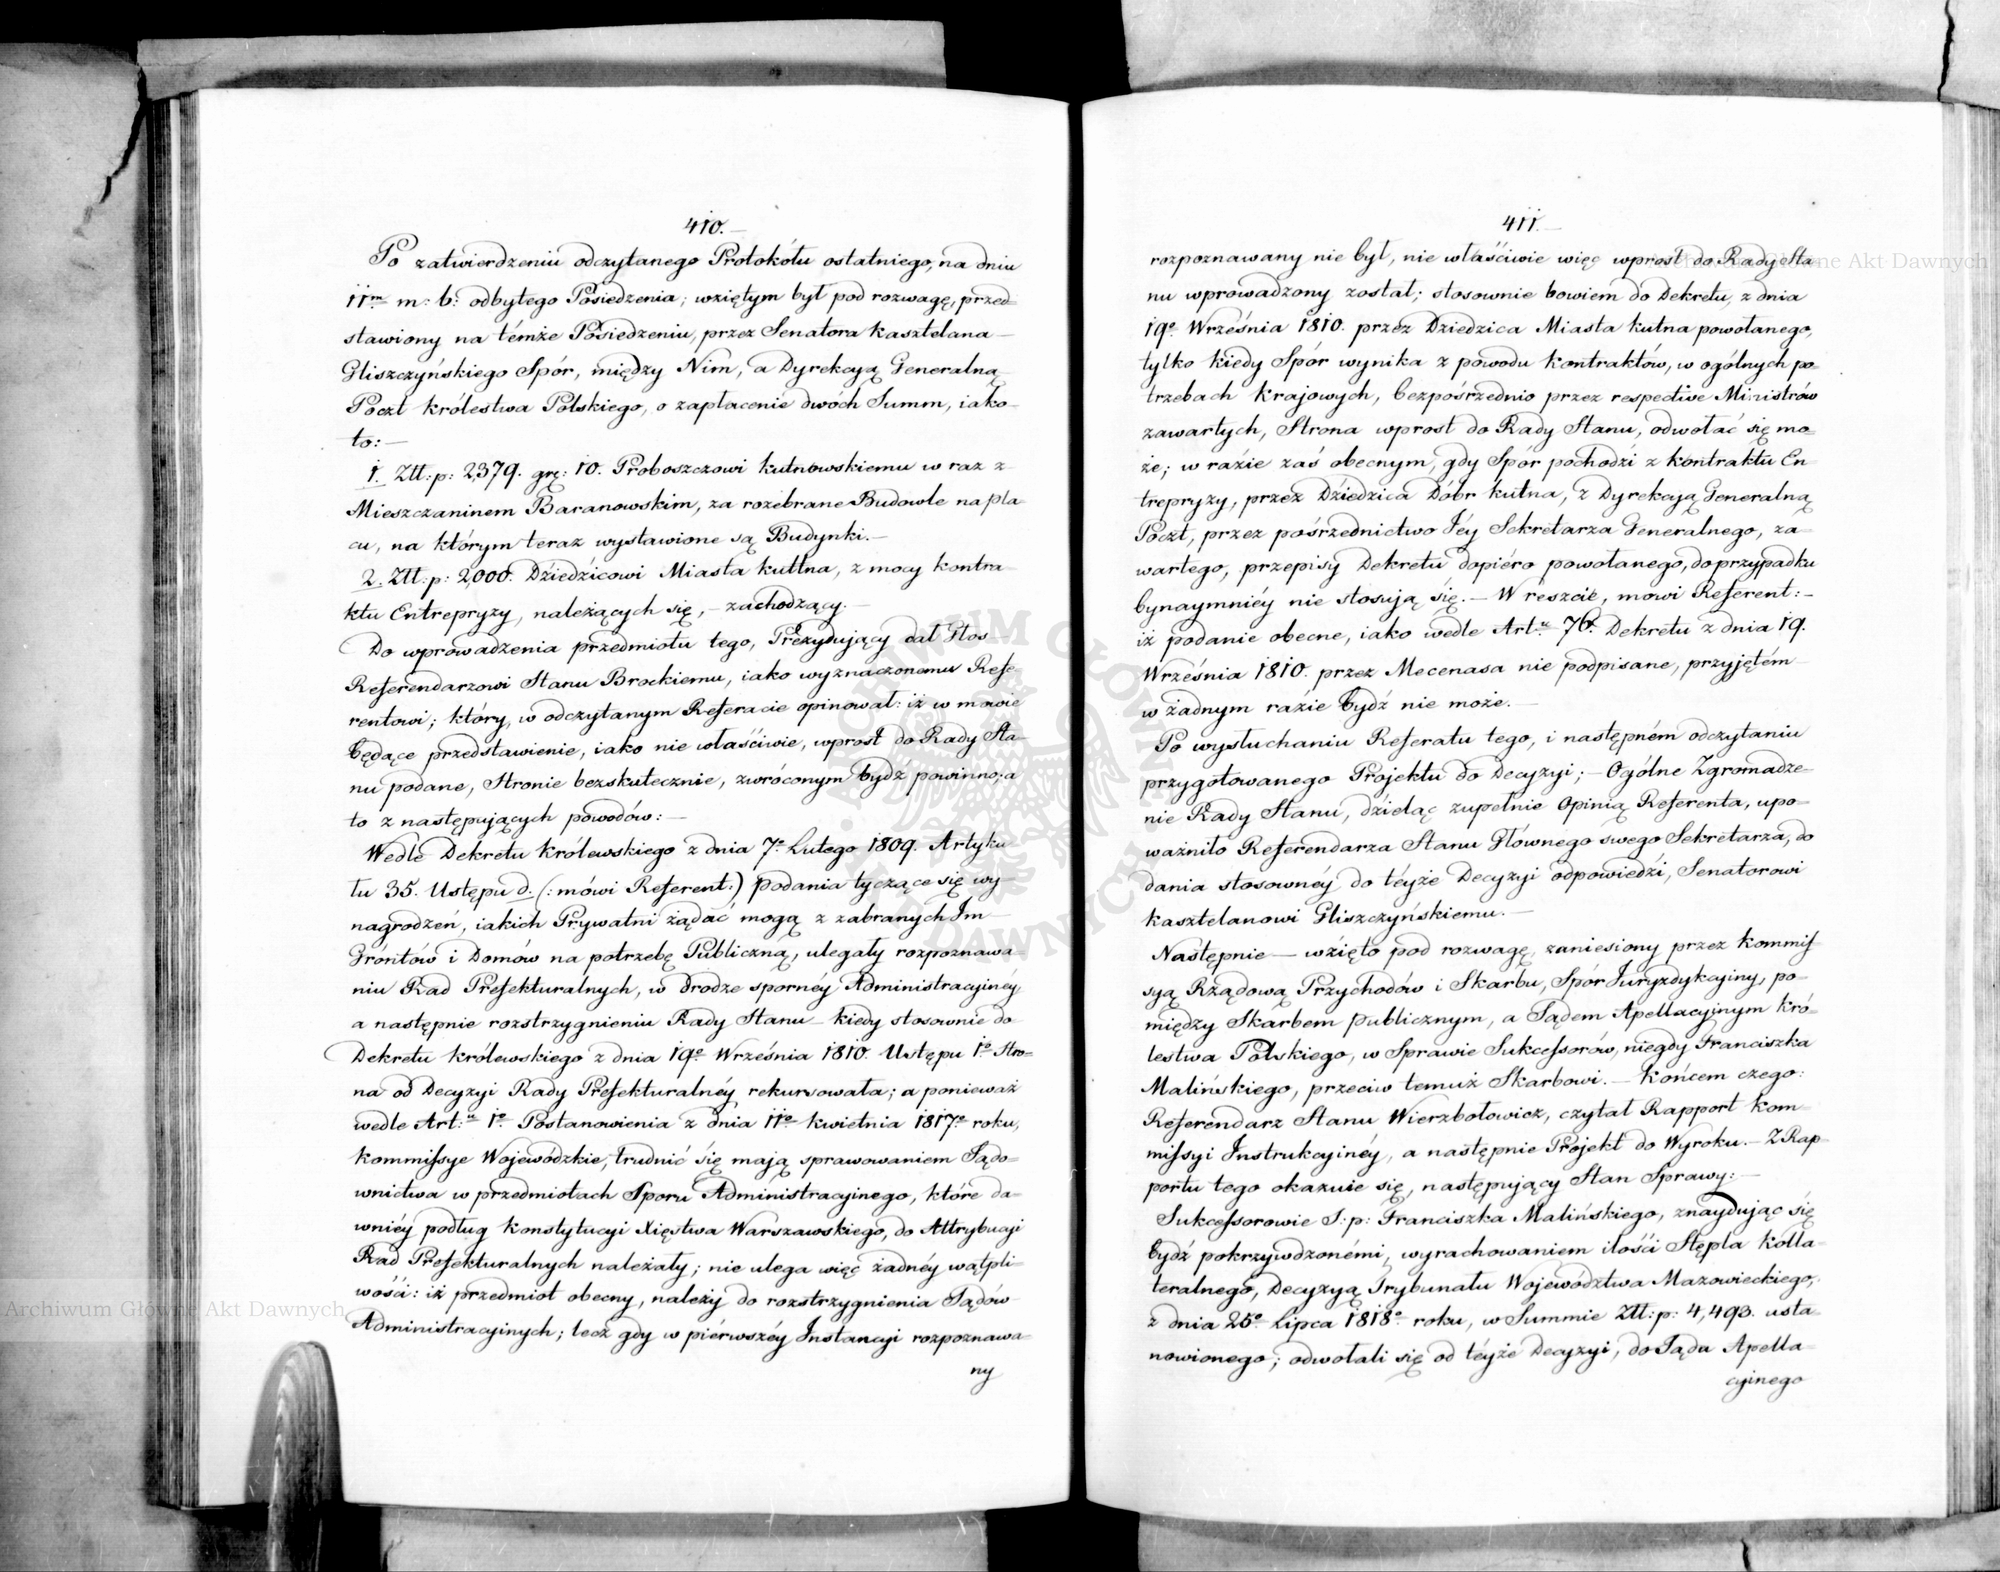 410.
Po zatwierdzeniu odczytanego Protokółu ostatniego, na dniu
11m m: b: odbytego Posiedzenia; wziętym był pod rozwagę, przed=
stawiony na témże Posiedzeniu, przez Senatora Kasztelana
Gliszczyńskiego Spór, między Nim, a Dyrekcyą Generalną
Poczt królestwa Polskiego, o zapłacenie dwóch Summ, iako
to:—
1. Złł: p: 2,379. grę: 10. Proboszczowi kutnowskiemu w raz z
Mieszczaninem Baranowskim, za rozebrane Budowle na pla=
cu, na którym teraz wystawione są Budynki.—
2. Złł: p: 2,000. Dziedzicowi Miasta kuttna, z mocy kontra=
ktu Entrepryzy, należących się, — zachodzący.—
Do wprowadzenia przedmiotu tego, Prezydujący dał Głos—
Referendarzowi Stanu Brockiemu, iako wyznaczonemu Refe=
rentowi; który, w odczytanym Referacie opinował: iż w mowie
będące przedstawienie, iako nie właściwie, wprost do Rady Sta=
nu podane, Stronie bezskutecznie, zwróconym bydź powinno; a
to z następujących powodów:—
Wedle Dekretu królewskiego z dnia 7o Lutego 1809. Artyku=
łu 35. Ustępu d. (: mówi Referent:) podania tyczące się wy=
nagrodzeń, iakich Prywatni żądać mogą z zabranych Im
Gróntów i Domów na potrzebę Publiczną, ulegały rozpoznawa=
niu Rad Prefekturalnych, w drodze spornéy Administracyinéy
a następnie rozstrzygnieniu Rady Stanu — kiedy stosownie do
Dekretu królewskiego z dnia 19o Września 1810. Ustępu 1o Stro=
na od Decyzyi Rady Prefekturalnéy rekursowała; a ponieważ
wedle Art:u 1o Postanowienia z dnia 11o kwietnia 1817o roku,
kommissye Wojewódzkie, trudnić się mają sprawowaniem Sądo=
wnictwa w przedmiotach Sporu Administracyinego, które da=
wniéy podług konstytucyi Xięstwa Warszawskiego, do Attrybucyi
Rad Prefekturalnych należały; nie ulega więc żadnéy wątpli=
wości: iż przedmiot obecny, należy do rozstrzygnienia Sądów
Administracyinych; lecz gdy w piérwszéy Instancyi rozpoznawa=
ny
411.
rozpoznawany nie był, nie właściwie więc wprost do Rady Sta=
nu wprowadzony został; stosownie bowiem do Dekretu, z dnia
19o Września 1810. przez Dziedzica Miasta kutna powołanego,
tylko kiedy Spór wynika z powodu kontraktów, w ogólnych po=
trzebach krajowych, bezpośrzednio przez respective Ministrów
zawartych, Strona wprost do Rady Stanu, odwołać się mo=
że; w razie zaś obecnym, gdy Spor pochodzi z kontraktu En=
trepryzy, przez Dziedzica Dóbr kutna, z Dyrekcyą Generalną
Poczt, przez pośrzednictwo Iéy Sekretarza Generalnego, za=
wartego, przepisy Dekretu dopiéro powołanego, do przypadku
bynaymniéy nie stosują się.— W reszcie, mówi Referent:—
iż podanie obecne, iako wedle Art:u 76. Dekretu z dnia 19.
Września 1810. przez Mecenasa nie podpisane, przyjętém
w żadnym razie bydź nie może.—
Po wysłuchaniu Referatu tego, i następném odczytaniu
przygotowanego Projektu do Decyzyi;— Ogólne Zgromadze=
nie Rady Stanu, dzieląc zupełnie Opinią Referenta, upo=
ważniło Referendarza Stanu Głównego swego Sekretarza, do
dania stosownéy do téyże Decyzyi odpowiedzi, Senatorowi
kasztelanowi Gliszczyńskiemu.—
Następnie — wzięto pod rozwagę, zaniesiony przez kommis=
syą Rządową Przychodów i Skarbu, Spór Juryzdykcyiny, po=
między Skarbem publicznym, a Sądem Apellacyinym kró=
lestwa Polskiego, w Sprawie Sukcessorów, niegdy Franciszka
Malińskiego, przeciw temuż Skarbowi.— końcem czego:
Referendarz Stanu Wierzbołowicz, czytał Rapport kom=
missyi Instrukcyinéy, a następnie Projekt do Wyroku.— Z Rap=
portu tego okazuie się, następujący Stan Sprawy:—
Sukcessorowie S: p: Franciszka Malińskiego, znaydując się
bydź pokrzywdzonémi, wyrachowaniem ilości Stępla kolla=
teralnego, Decyzyą Trybunału Województwa Mazowieckiego,
z dnia 25o Lipca 1818o roku, w Summie Złł: p: 4,493. usta=
nowionego; odwołali się od téyże Decyzyi, do Sądu Apella=
cyinego
Archiwum Główne Akt Dawnych
Archiwum Główne Akt Dawnych
ARCHIWUM GŁÓWNE AKT DAWNYCH